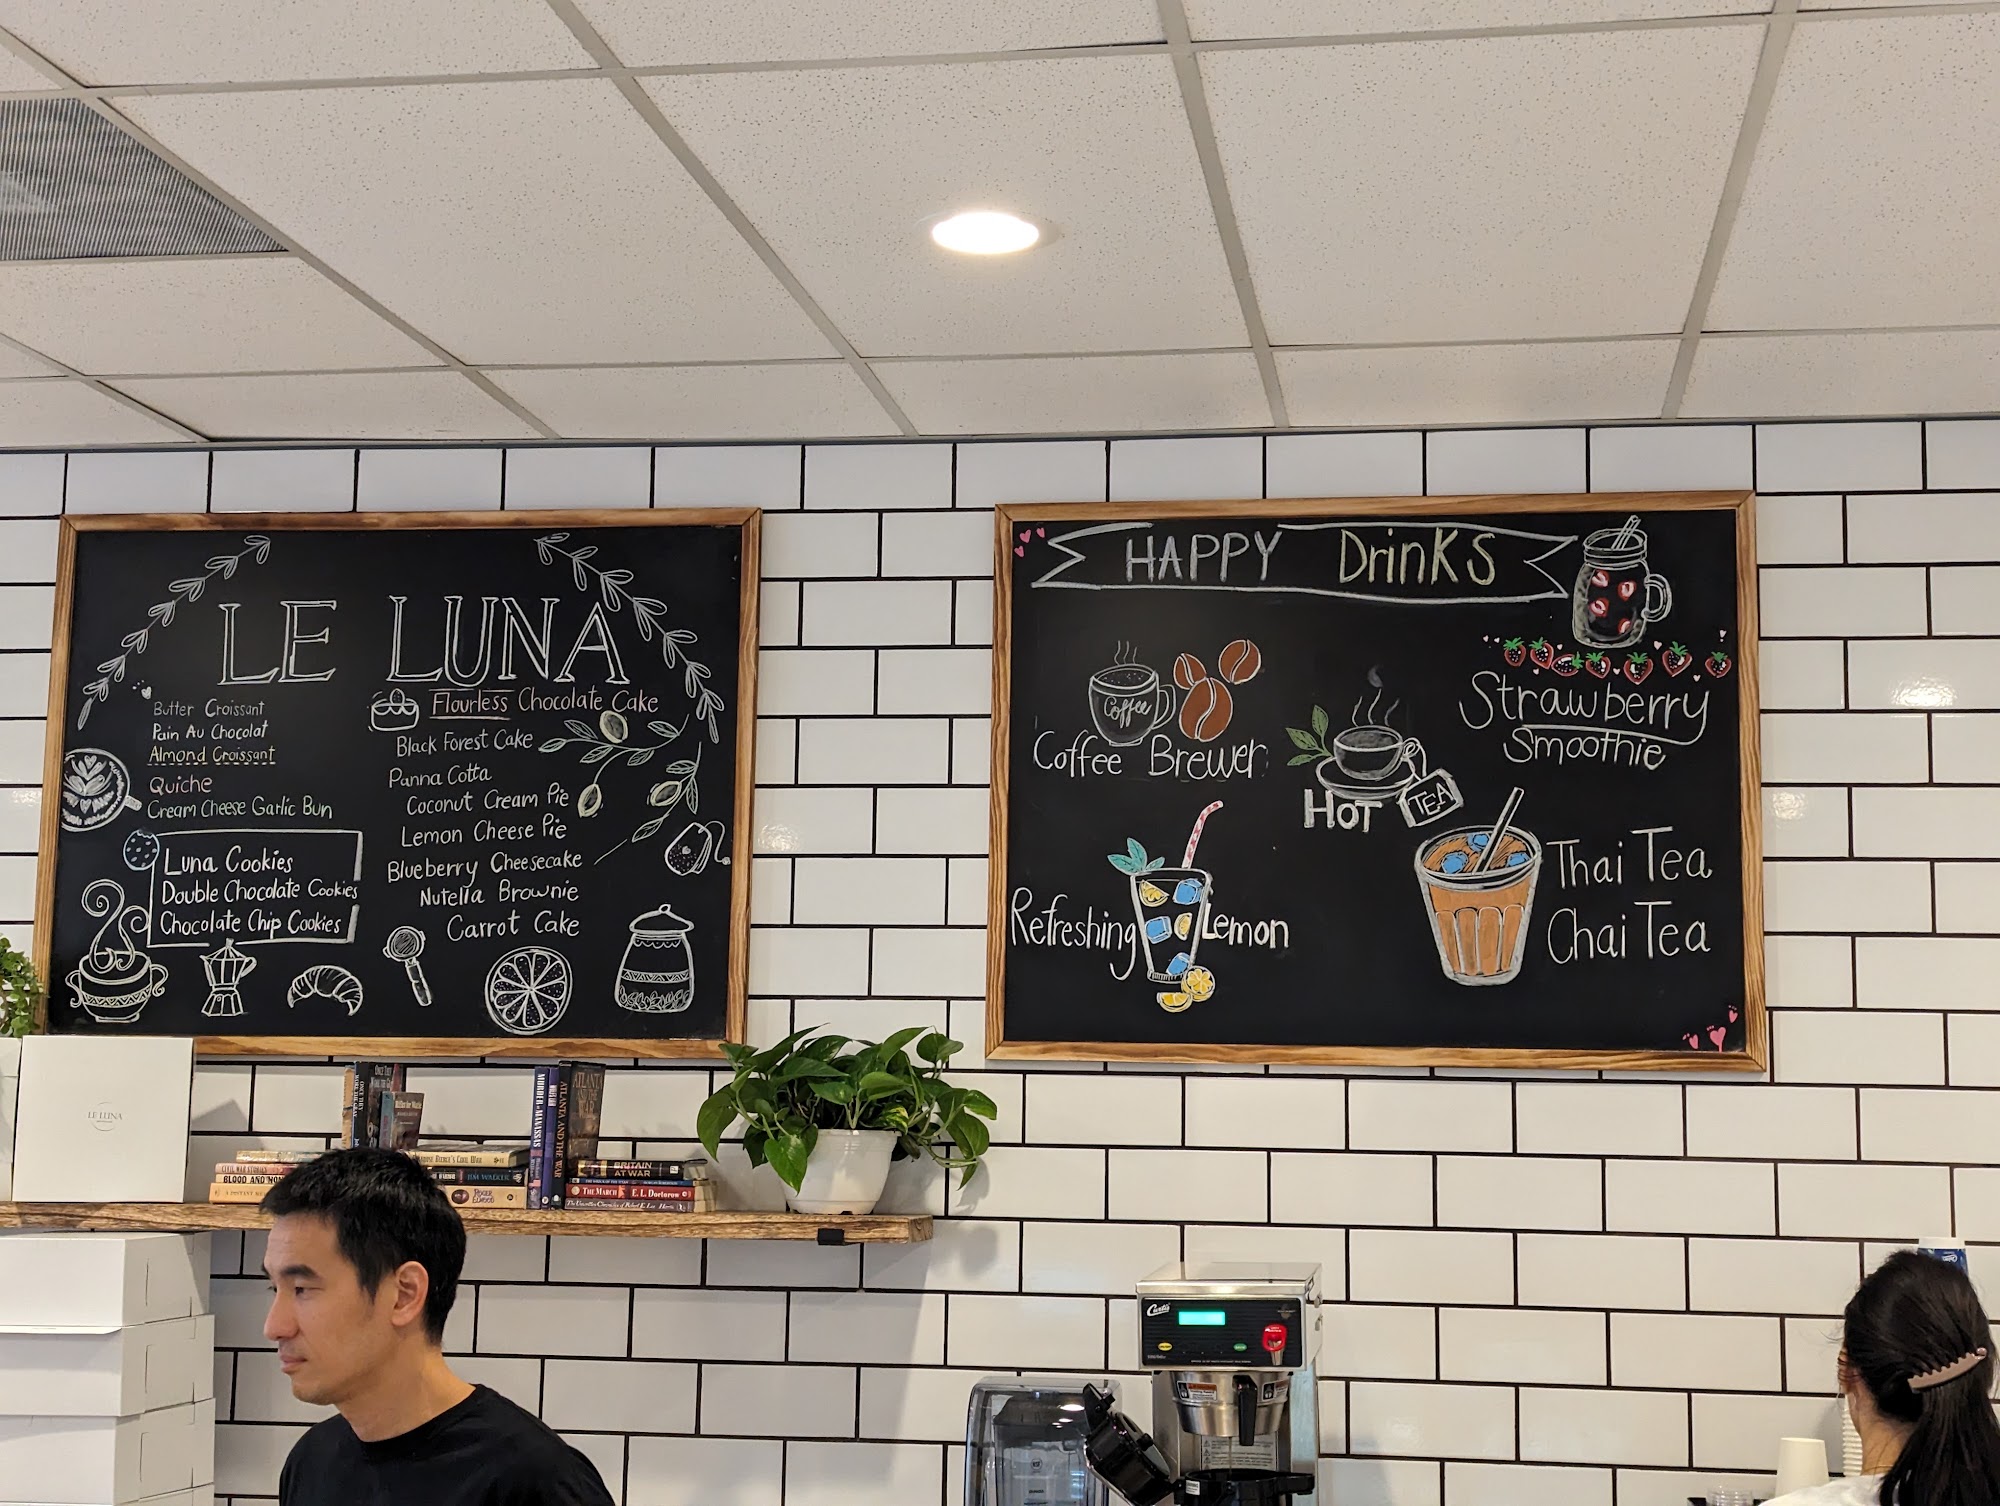 LE LUNA
Butter Croissant
Pain Au Chocolat
Almond Croissant
Quiche
Cream Cheese Garlic Bun
Luna Cookies
Double Chocolate Cookies
Chocolate Chip Cookies
Flourless Chocolate Cake
Black Forest Cake
Panna Cotta
Coconut Cream Pie
Lemon Cheese Pie
Blueberry Cheesecake
Nutella Brownie
Carrot Cake
HAPPY DrinKS
Coffee
Coffee Brewer
HOT TEA
Strawberry
Smoothie
Refreshing Lemon
Thai Tea
Chai Tea
LE LUNA
CIVIL WAR STORIES
BLOOD AND
A DISTANT
JIM WALKER
MURDER AT MANASSAS
ATLANTA AND THE WAR
ATLANTA
AND THE
WAR
BRITAIN
AT WAR
THE MARCH E. L. Doctorow
Curtis